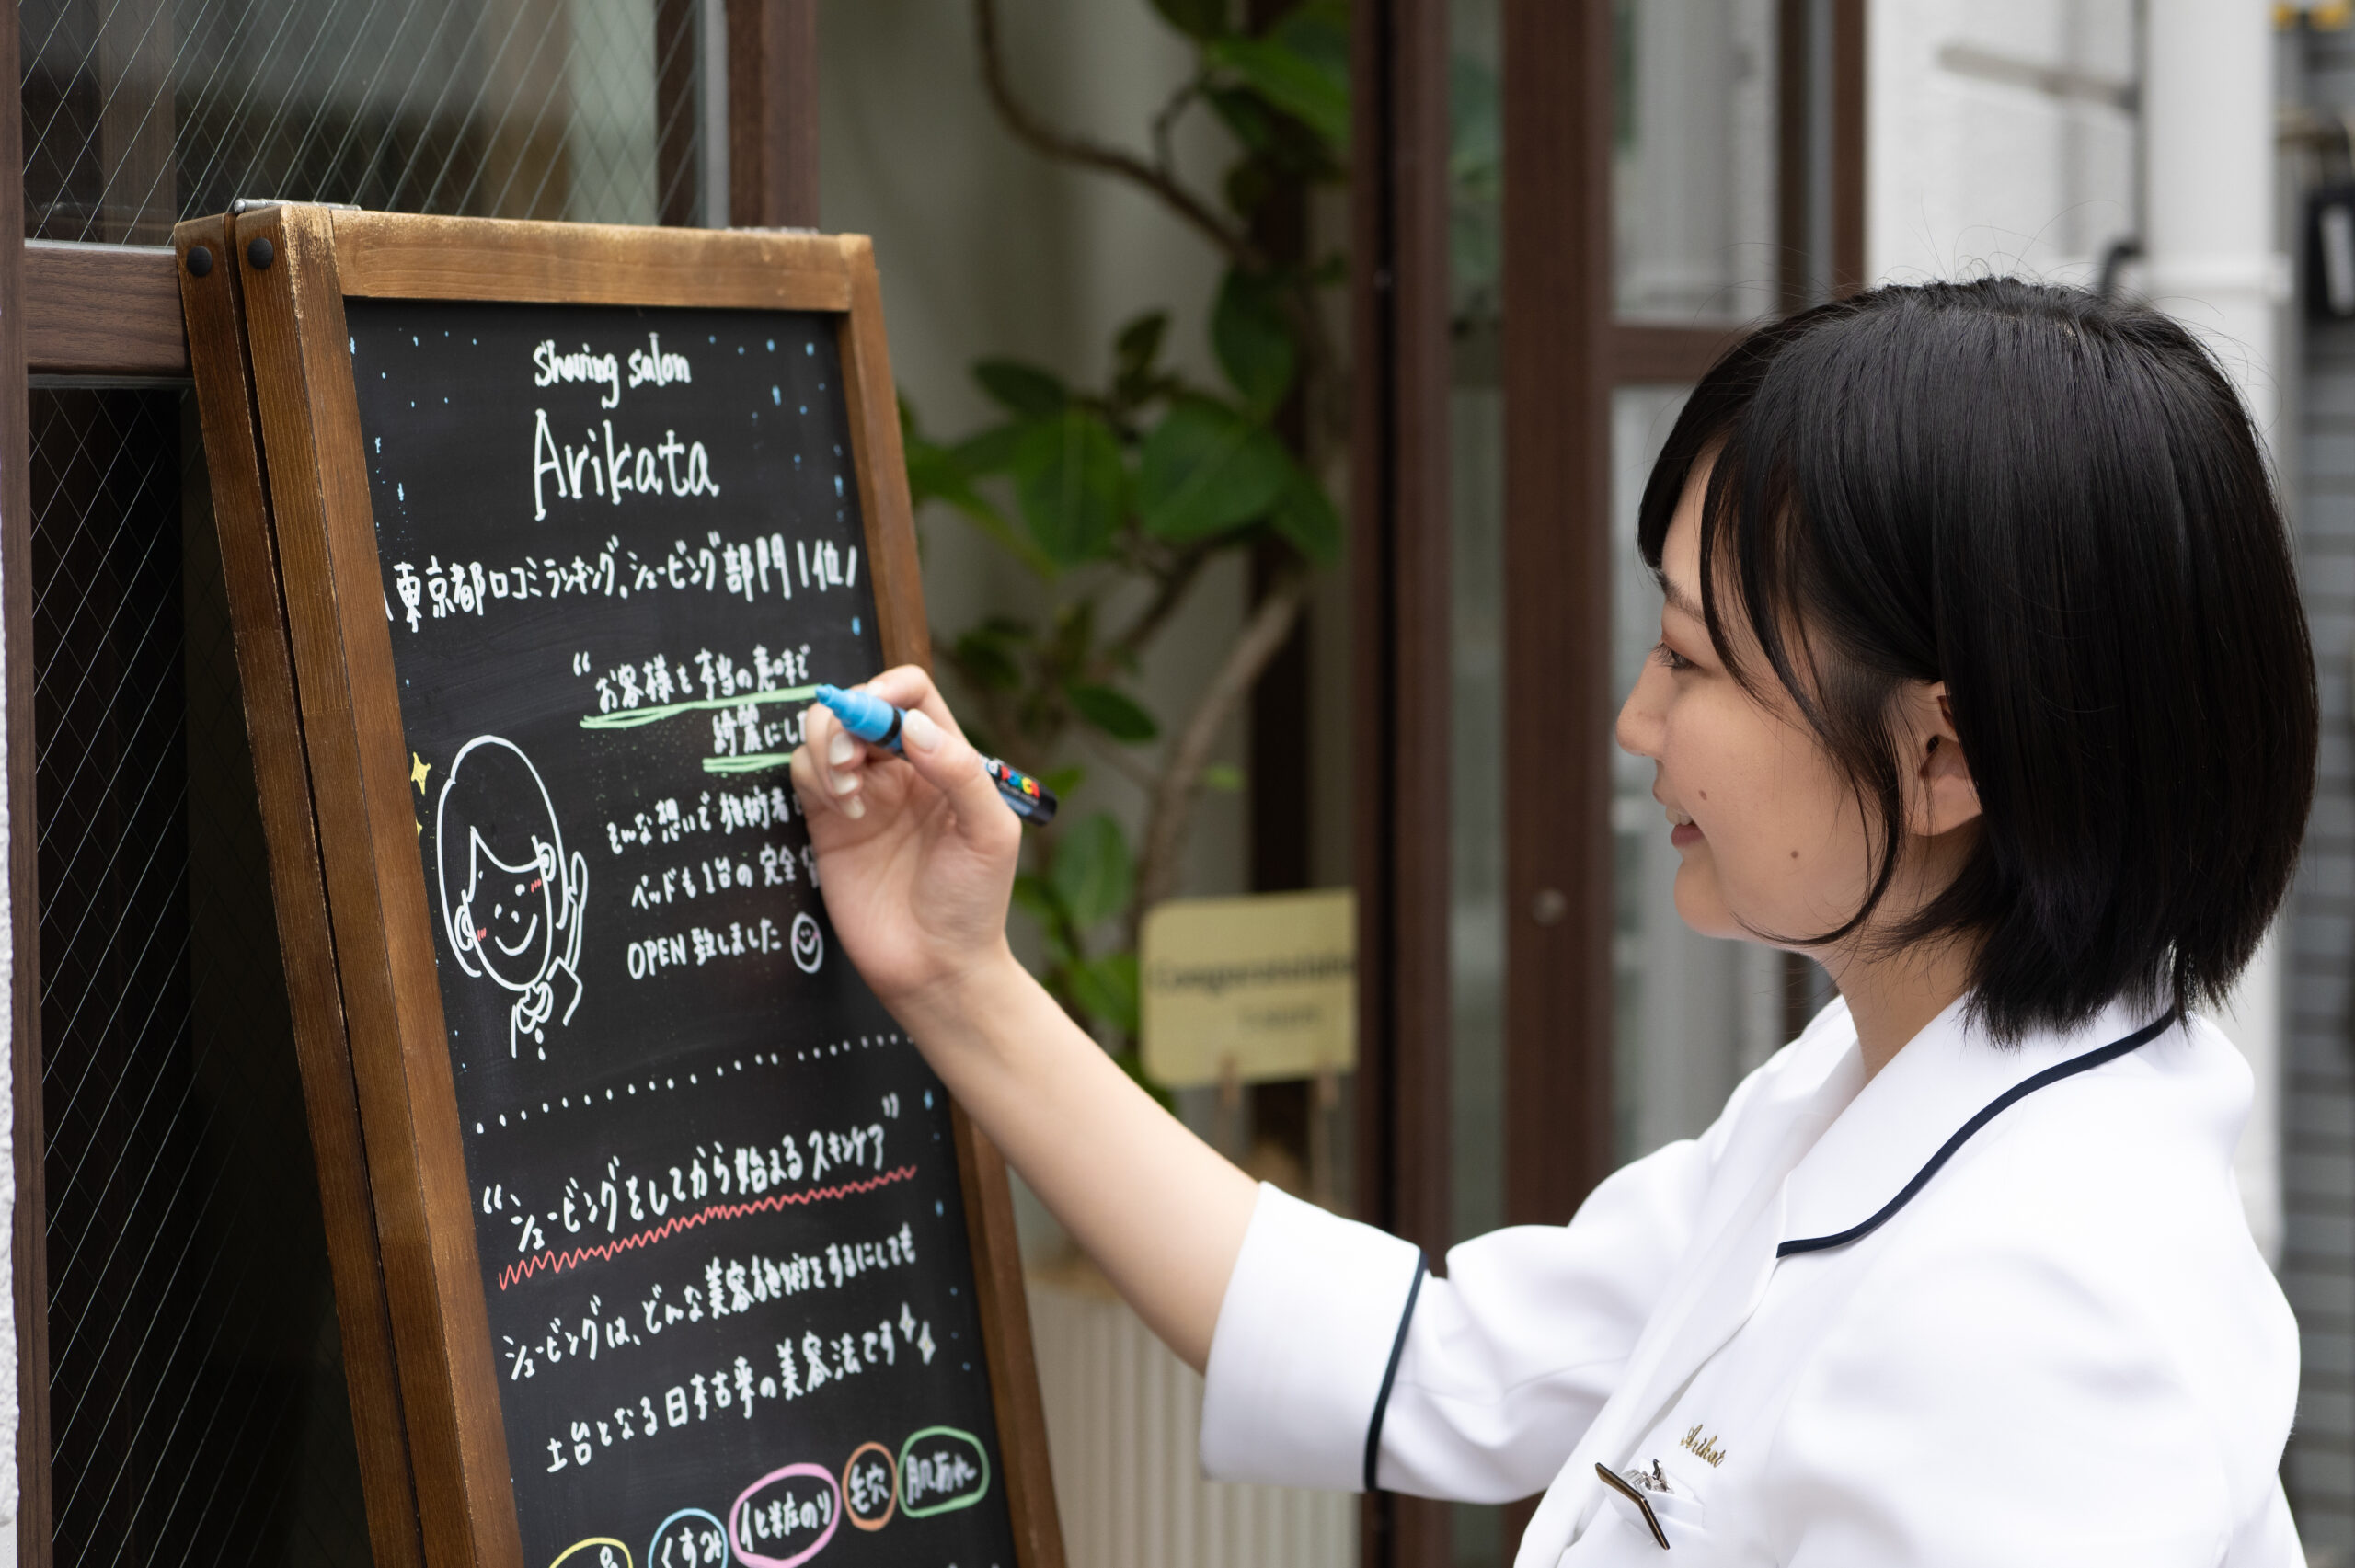 Shaving salon
Arikata
\東京都口コミランキング。シェービング部門1位/
“お客様を本当の意味で
綺麗にした
そんな想いで施術者も
ベッドも1台の完全
OPEN致しました
“シェービングをしてから始まるスキンケア”
シェービングは、どんな美容施術をするにしても
土台となる日本古来の美容法です
くすみ 化粧のり 毛穴 肌荒れ
Arikat